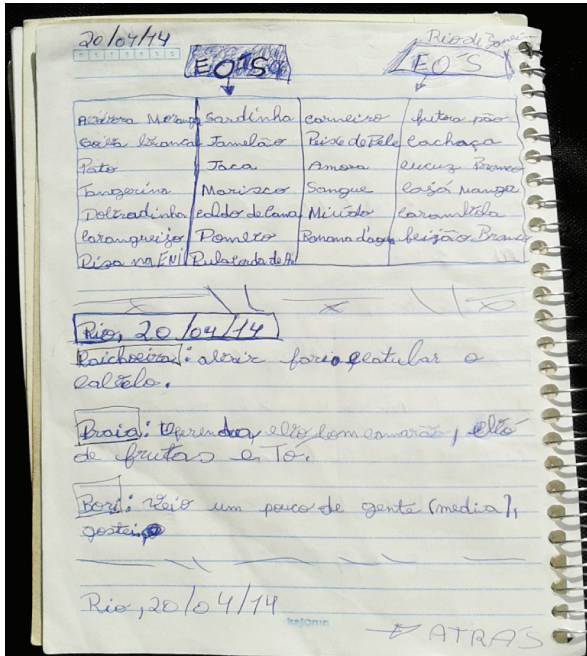 20/04/14 Rio de
EO'S EO'S
Moranga Sardinha carneiro fruta pão
Branca Jamelão Peixe de Pele cachaça
Pato Jaca Amora cucuz Branco
Tangerina Marisco Sangue cajá manga
Dobradinha caldo de cana Miúdo carambola
carangueijo Pombo Banana d'agua feijão Branco
Pisa na Pula corda de
Rio, 20/04/14
: abrir catular o
cabelo.
Praia: com camarão,
de frutas e
Bori: veio um pouco de gente (media),
gostei
Rio, 20/04/14
kajoma
ATRÁS